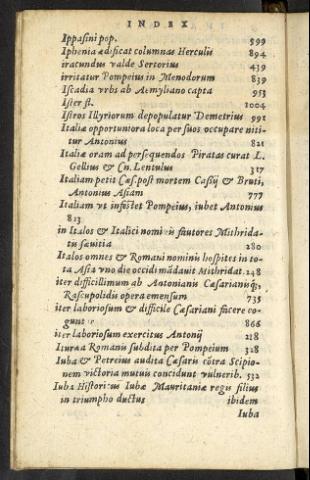 INDEX
Ippasini pop. 599
Iphenia ædificat columnas Herculis 894
iracundus valde Sertorius 439
irritatur Pompeius in Menodorum 839
Iscadia vrbs ab Aemyliano capta 953
Ister fl. 1004
Istros Illyriorum depopulatur Demetrius 991
Italiæ opportuniora loca per suos occupare niti-
tur Antonius 821
Italiæ oram ad persequendos Piratas curat L.
Gellius & Cn. Lentulus 317
Italiam petit Cæs. post mortem Cassij & Bruti,
Antonius Asiam 777
Italiam vt infestet Pompeius, iubet Antonius
813
in Italos & Italici nominis fautores Mithrida-
tis sæuitia 280
Italos omnes & Romani nominis hospites in to-
ta Asia vno die occidi mãdauit Mithridat. 248
iter difficillimum ab Antonianis Cæsarianisq;
Rascupolidis opera emensum 735
iter laboriosum & difficile Cæsariani facere co-
gunt 866
iter laboriosum exercitus Antonij 218
Ituræa Romanis subdita per Pompeium 328
Iuba & Petreius audita Cæsaris cõtra Scipio-
nem victoria mutuis concidunt vulnerib. 532
Iuba Historicus Iubæ Mauritaniæ regis filius
in triumpho ductus ibidem
Iuba